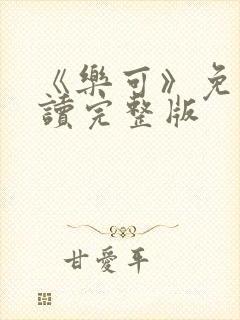 《樂可》免
讀完整版
甘愛平